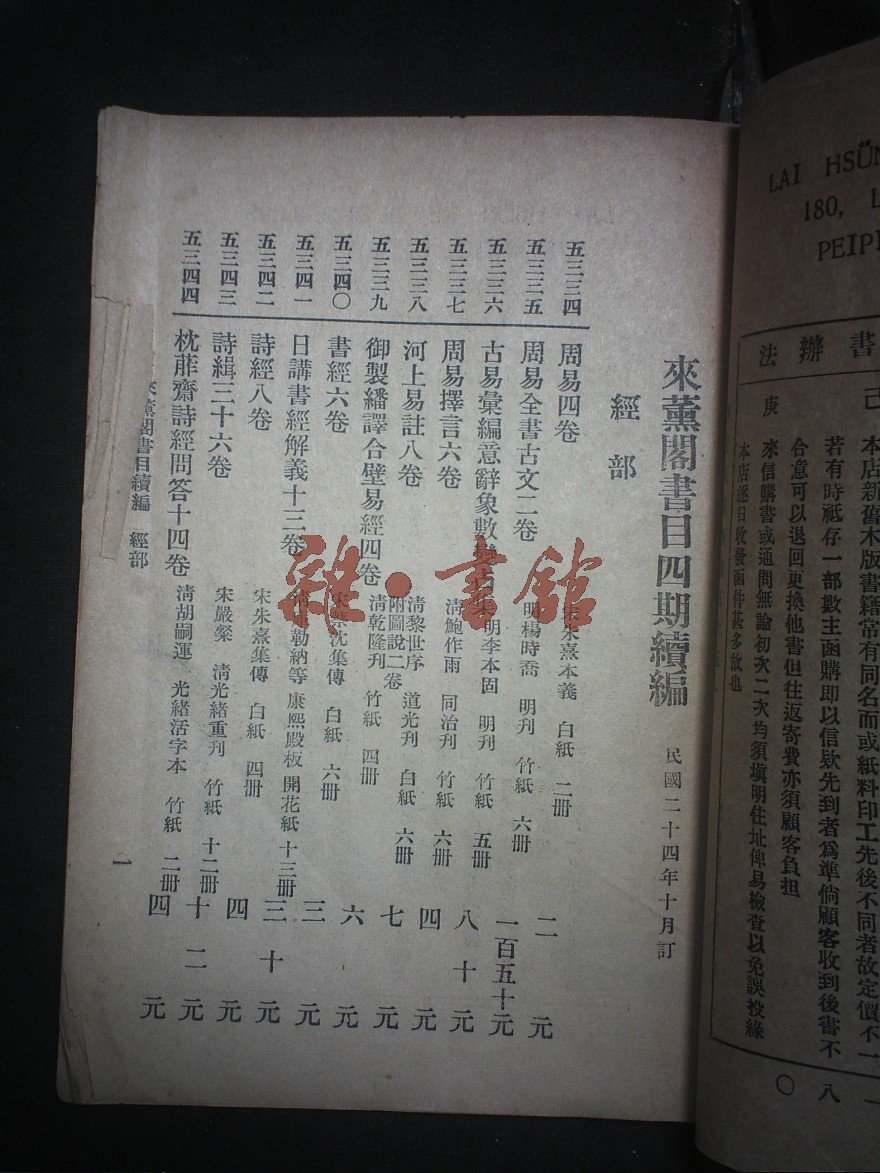 LAI HSÜN
180, L
PEIP
書辦法
己
本店新舊木版書籍常有同名而或紙料印工先後不同者故定價不一
若有時祗存一部數主函購即以信欵先到者爲準倘顧客收到後書不
合意可以退回更換他書但往返寄費亦須顧客負担
庚
來信購書或通問無論初次二次均須塡明住址俾易檢查以免誤投緣
本店逐日收發函件甚多故也
八〇
來薰閣書目四期續編 民國二十四年十月訂
經部
五三三四 周易四卷 宋朱熹本義 白紙 二册 二元
五三三五 周易全書古文二卷 明楊時喬 明刊 竹紙 六册 一百五十元
五三三六 古易彙編意辭象數變占 明李本固 明刊 竹紙 五册 八十元
五三三七 周易擇言六卷 淸鮑作雨 同治刊 竹紙 六册 四元
五三三八 河上易註八卷 附圖說二卷 淸黎世序 道光刊 白紙 六册 七元
五三三九 御製繙譯合壁易經四卷 淸乾隆刊 竹紙 四册 六元
五三四〇 書經六卷 宋蔡沈集傳 白紙 六册 三元
五三四一 日講書經解義十三卷 淸庫勒納等 康熙殿板 開花紙 十三册 三十元
五三四二 詩經八卷 宋朱熹集傳 白紙 四册 四元
五三四三 詩緝三十六卷 宋嚴粲 淸光緒重刊 竹紙 十二册 十二元
五三四四 枕葄齋詩經問答十四卷 淸胡嗣運 光緒活字本 竹紙 二册 四元
來薰閣書目續編 經部
一
雜·書館